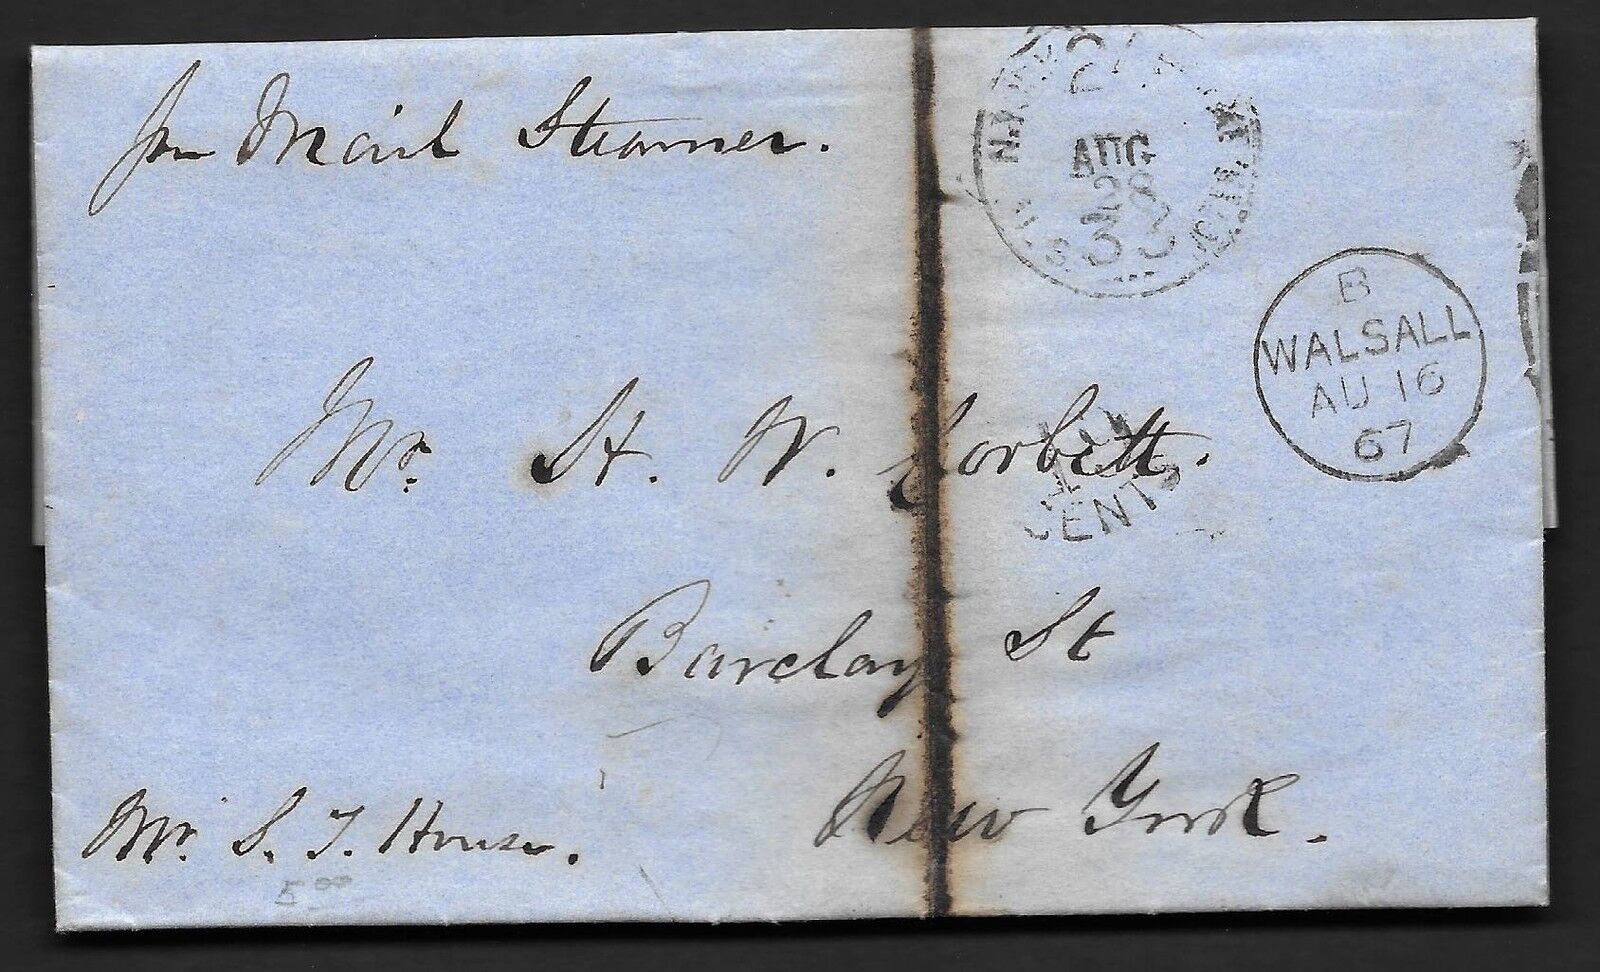 per Mail Steamer.
24
AUG
28
33
N.
U.S.
B
WALSALL
AU 16
67
Mr. H. W. Corbett.
CENTS
Barclay St
New York.
Mr. S. T. House.
5 00